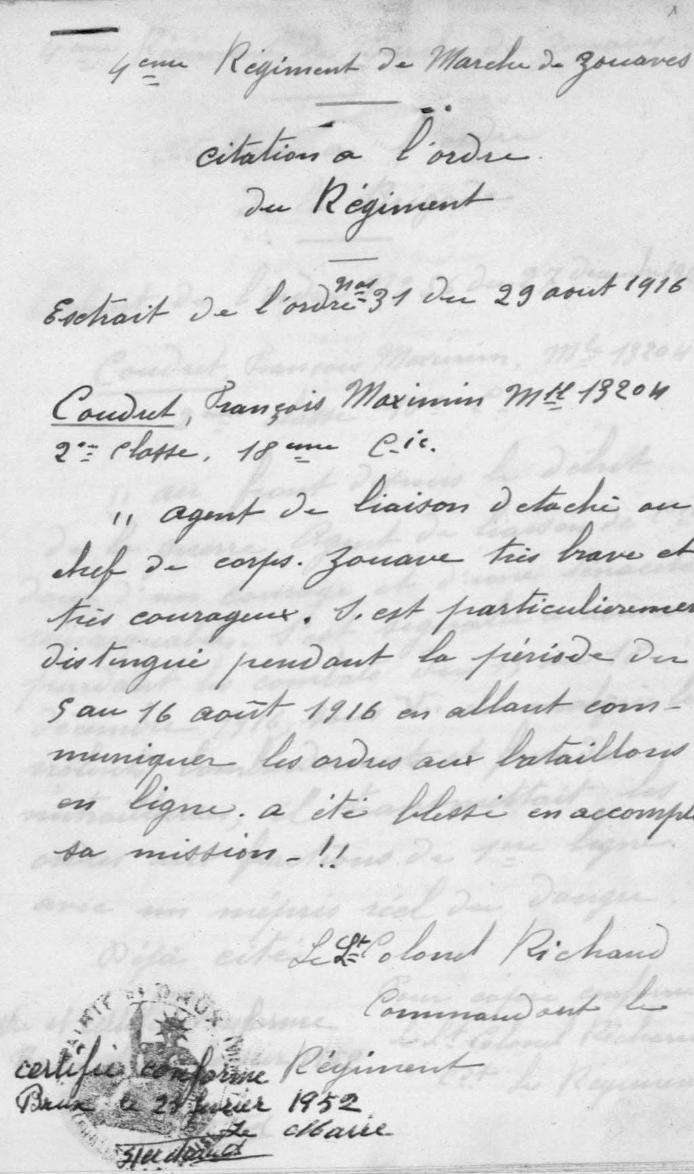 4eme Régiment de Marche de Zouaves
citation a l'ordre
du Régiment
Extrait de l'ordre Nos 31 du 29 aout 1916
Coudret, François Maximin Mle 13204
2e classe, 18eme Cie.
" agent de liaison detaché au
chef de corps. Zouave très brave et
très courageux. S'est particulieremen
distingué pendant la période du
5 au 16 août 1916 en allant com-
muniquer les ordres aux bataillons
en ligne. a été blessé en accompl
sa mission - !!
Le Lt Colonel Richaud
Commandant le
Régiment
certifié conforme
le 25 février 1952
Le Maire